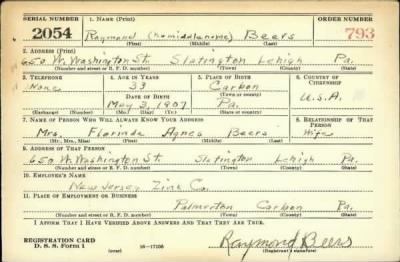 SERIAL NUMBER 1. NAME (Print) ORDER NUMBER
2054 Raymond (no middle name) Beers 793
(First) (Middle) (Last)
2. ADDRESS (Print)
650 W. Washington St. Slatington Lehigh Pa.
(Number and street or R. F. D. number) (Town) (County) (State)
3. TELEPHONE 4. AGE IN YEARS 5. PLACE OF BIRTH 6. COUNTRY OF CITIZENSHIP
None 33 Carbon
DATE OF BIRTH (Town or county)
May 3, 1907 Pa. U.S.A.
(Exchange) (Number) (Mo.) (Day) (Yr.) (State or country)
7. NAME OF PERSON WHO WILL ALWAYS KNOW YOUR ADDRESS 8. RELATIONSHIP OF THAT PERSON
Mrs. Florinda Agnes Beers Wife
(Mr., Mrs., Miss) (First) (Middle) (Last)
9. ADDRESS OF THAT PERSON
650 W. Washington St. Slatington Lehigh Pa.
(Number and street or R. F. D. number) (Town) (County) (State)
10. EMPLOYER'S NAME
New Jersey Zinc Co.
11. PLACE OF EMPLOYMENT OR BUSINESS
Palmerton Carbon Pa.
(Number and street or R. F. D. number) (Town) (County) (State)
I AFFIRM THAT I HAVE VERIFIED ABOVE ANSWERS AND THAT THEY ARE TRUE.
REGISTRATION CARD
D. S. S. Form 1 (over) 16-17105 Raymond Beers
(Registrant's signature)